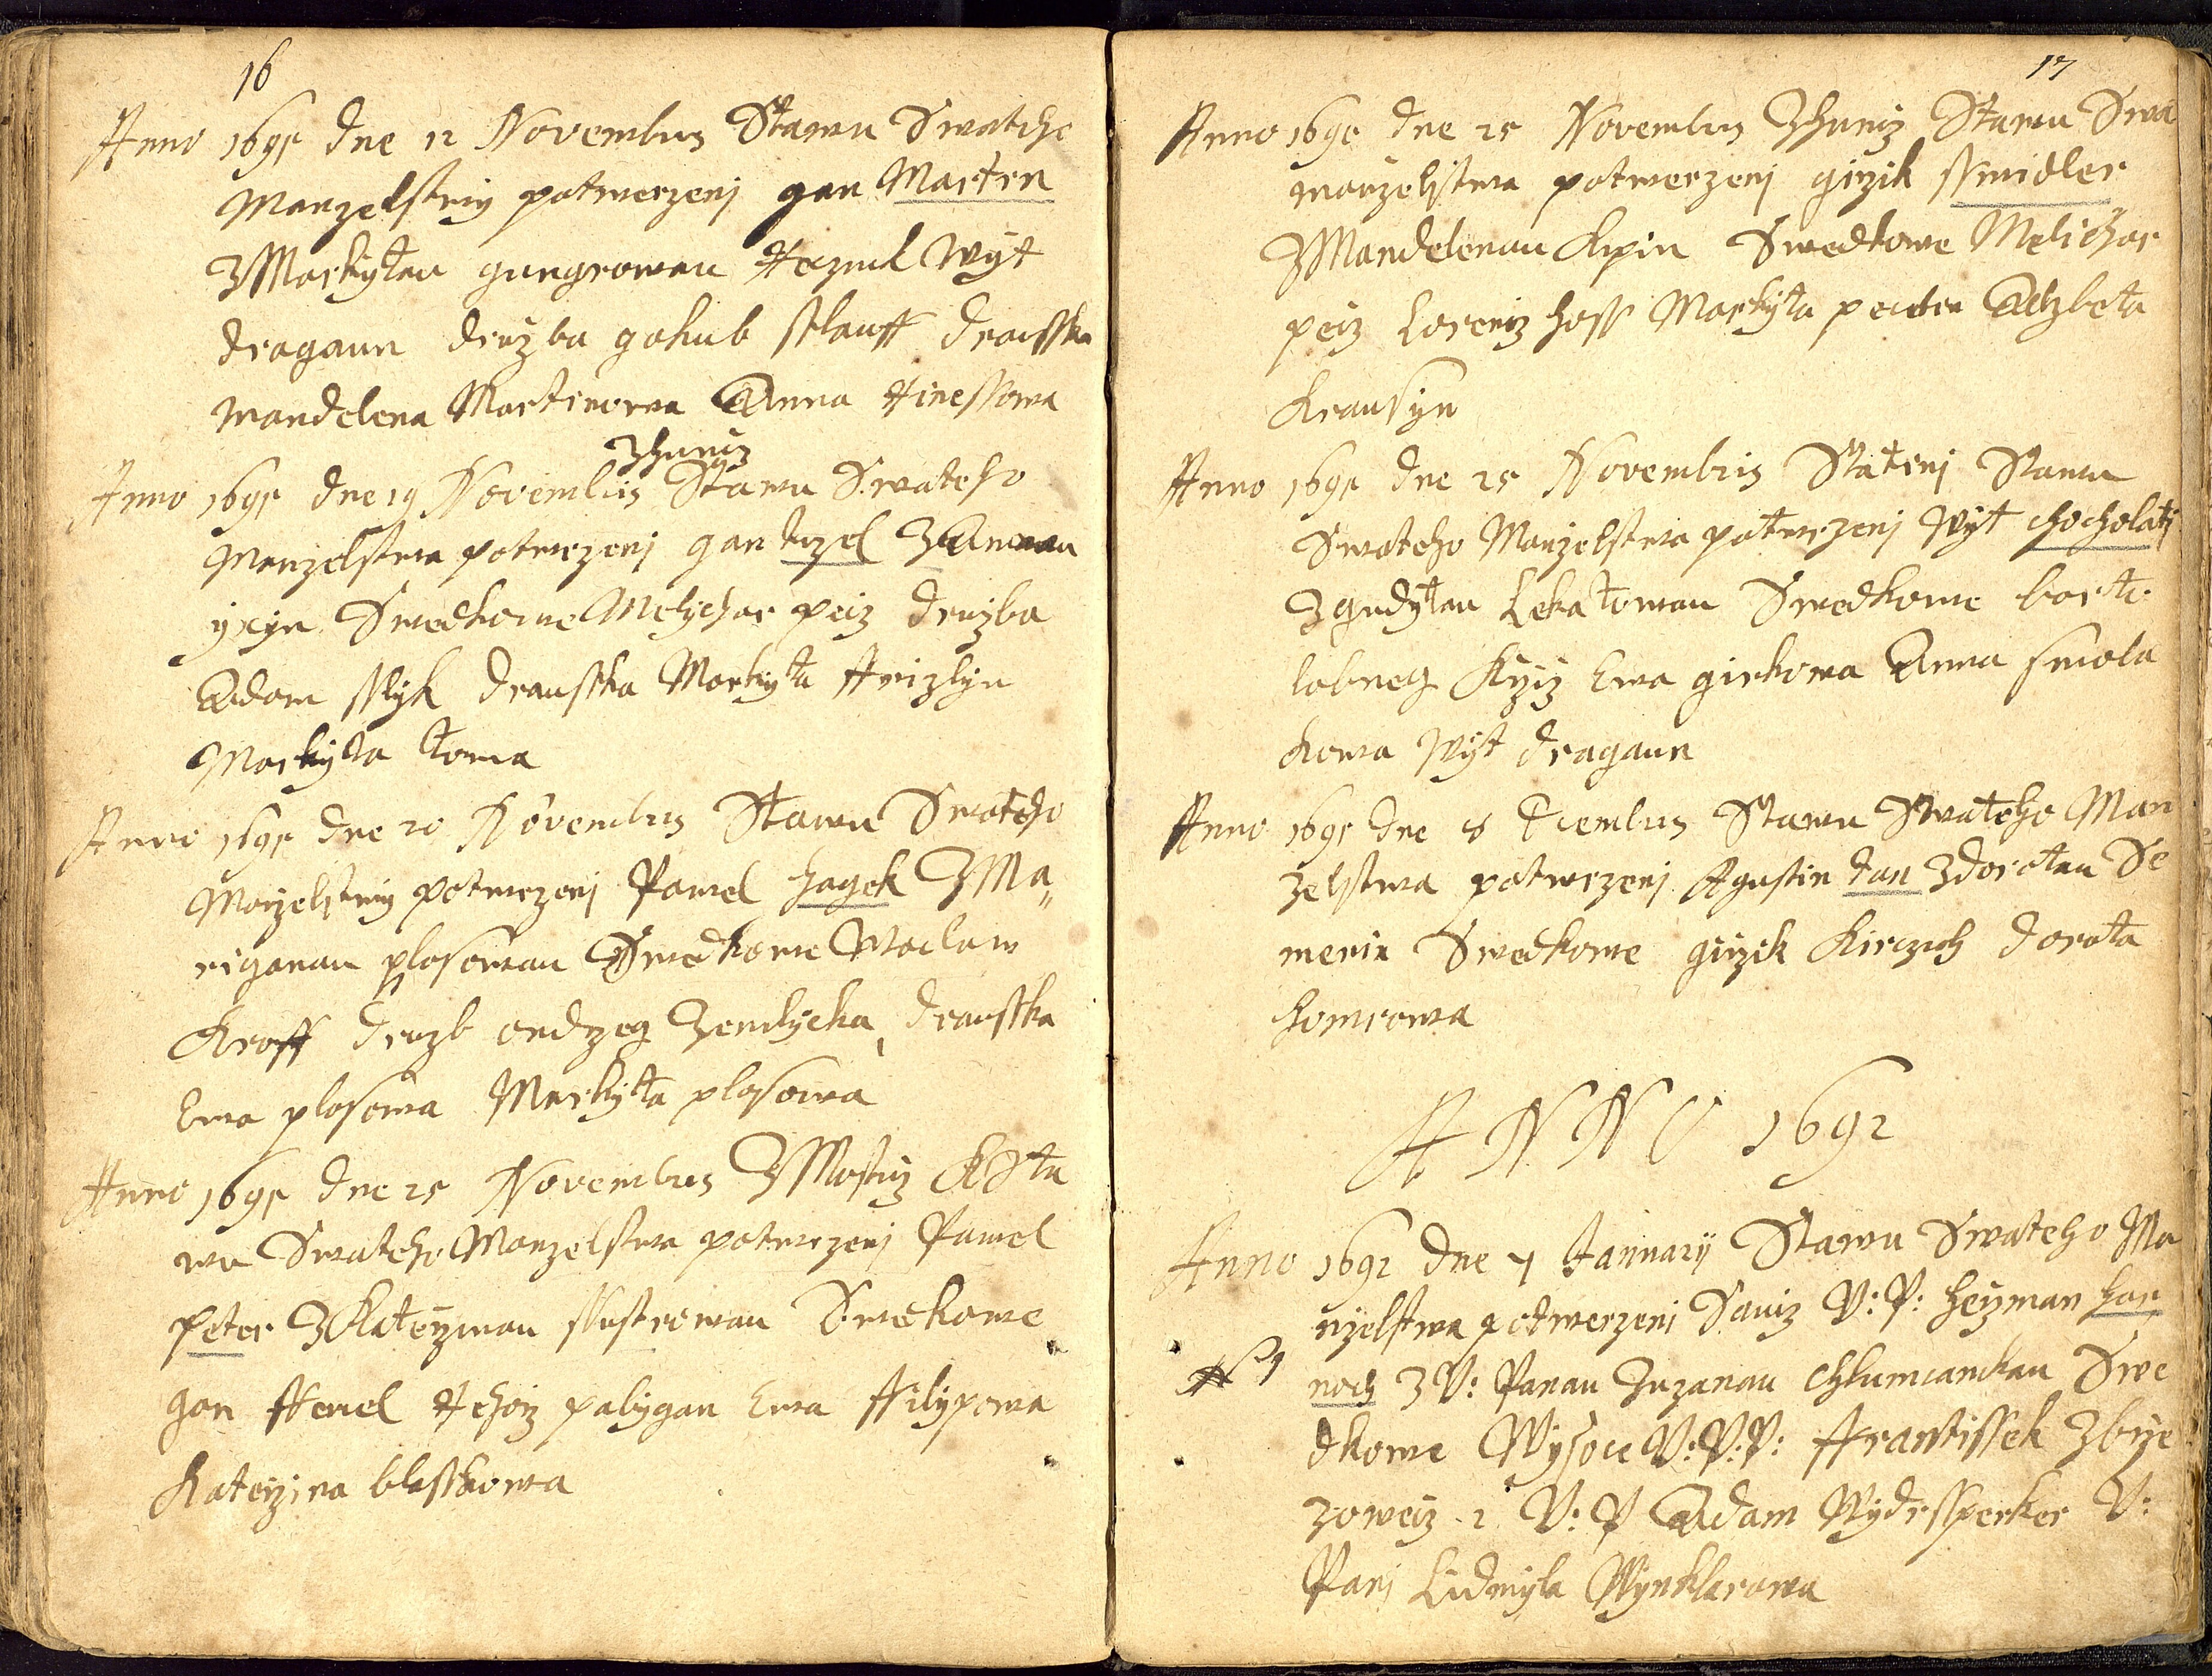 16
Anno 1691 dne 12 Novembris Stawu Swateho
Manzelstwy potwerzenj gan Marten
Z Markytau gungrowau Swedk Wyt
dragaun druzba gakub sslauff drusska
Mandelena Martinowa Anna Hinessowa
Zhuniz
Anno 1691 dne 19 Novembris Stawu Swateho
Manzelstwa potwrzenj gan Z Annau
Swedkowe Melychar peiz druzba
Adam sslyk drausska Markyta
Markyta
Anno 1691 dne 20 Novembris Stawu Swateho
Manzelstwy potwrzenj Pawel hagek Z Ma„
riganau plosowau Swedkowe Waclaw
Kroff druzb ondrzeg Zemlycka drausska
Ewa plosowa Markyta plosowa
Anno 1691 dne 25 Novembris Z Mostiz K Sta
wu Swateho Manzelstwa potwrzenj Pawel
Peter Z Kateyznau ssustrowau Swekowe
gan Hemel pabygan Ewa ffilypowa
Kateyzina blasskowa
17
Anno 1691 dne 25 Novembris Zhuniz Stawu Swa
manzelstwa potwerzenj girzik ssmidler
Z Mandelenau Swedkowe Melichar
peiz Lorentz hoss Markyta Alzbeta
Krausyn
Anno 1691 dne 25 Novembris Stawu
Swateho Manzelstwa potwrzenj Wyt chocholaty
Z gudytau Lekatowau Swedkowe barto
lobneg Kyiz Ewa girkowa Anna smola
kowa Wyt dragaun
Anno 1691 dne 8 Stawu Swateho Man
zelstwa potwrzenj Agustin dan Z dorotau Se
merin Swedkowe girzik Kirczich dorota
homrowa
ANNO 1692
Anno 1692 dne 7 Jannarij Stawu Swateho Ma
nzelstwa potwerzeni Sauiz V: P: heyman har
noch Z V: Panau Zuzanau Chlumcanskau Swe
dkowe Wysoce V: P: P: Frantissek Zbye
zoweiz 2 V: P Adam Wydrssperker V:
Panj Lidmyla Wynklarowa